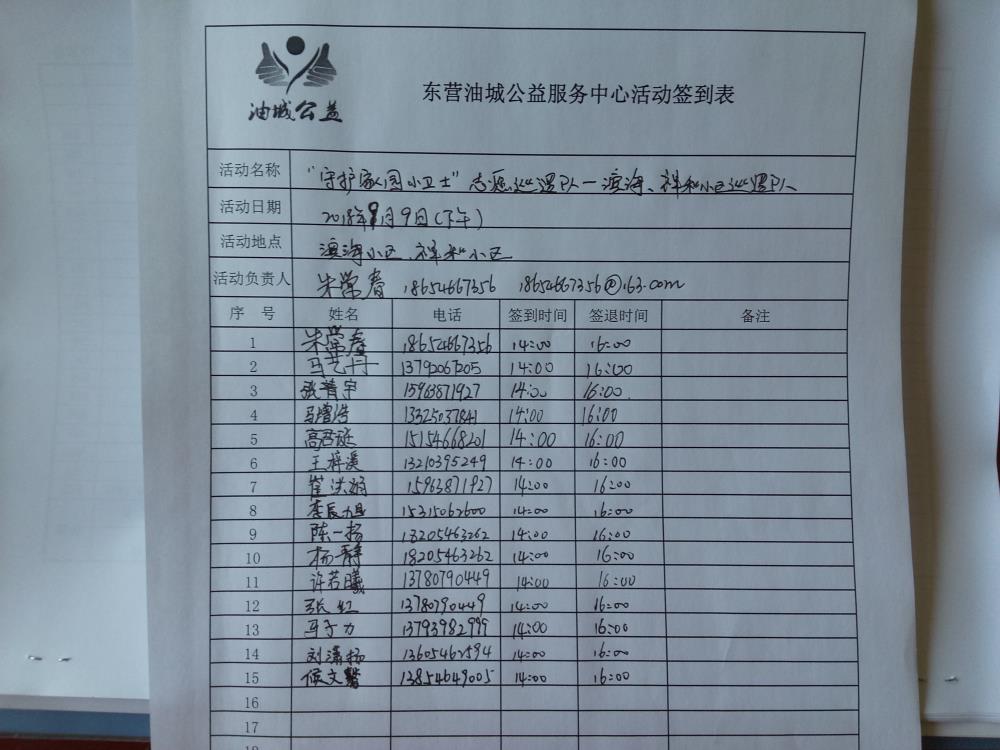 油城公益
东营油城公益服务中心活动签到表
活动名称 “守护家园小卫士”志愿巡逻队—滨海、祥和小区巡逻队
活动日期 2018年9月9日(下午)
活动地点 滨海小区、祥和小区
活动负责人 朱常春 18654667356 18654667356@163.com
序 号 姓名 电话 签到时间 签退时间 备注
1 朱常春 18654667356 14:00 16:00
2 马艺丹 13792067205 14:00 16:00
3 张菁宇 15963871927 14:00 16:00
4 马增浩 13325037841 14:00 16:00
5 高 15154668201 14:00 16:00
6 王梓溪 13210395249 14:00 16:00
7 崔洪娟 15963871927 14:00 16:00
8 李辰旭 15315062600 14:00 16:00
9 陈一扬 18205463262 14:00 16:00
10 杨静 18205463262 14:00 16:00
11 许若曦 13780790449 14:00 16:00
12 张红 13780790449 14:00 16:00
13 马子力 13793982999 14:00 16:00
14 刘潇扬 13605462594 14:00 16:00
15 侯文馨 13854649005 14:00 16:00
16
17